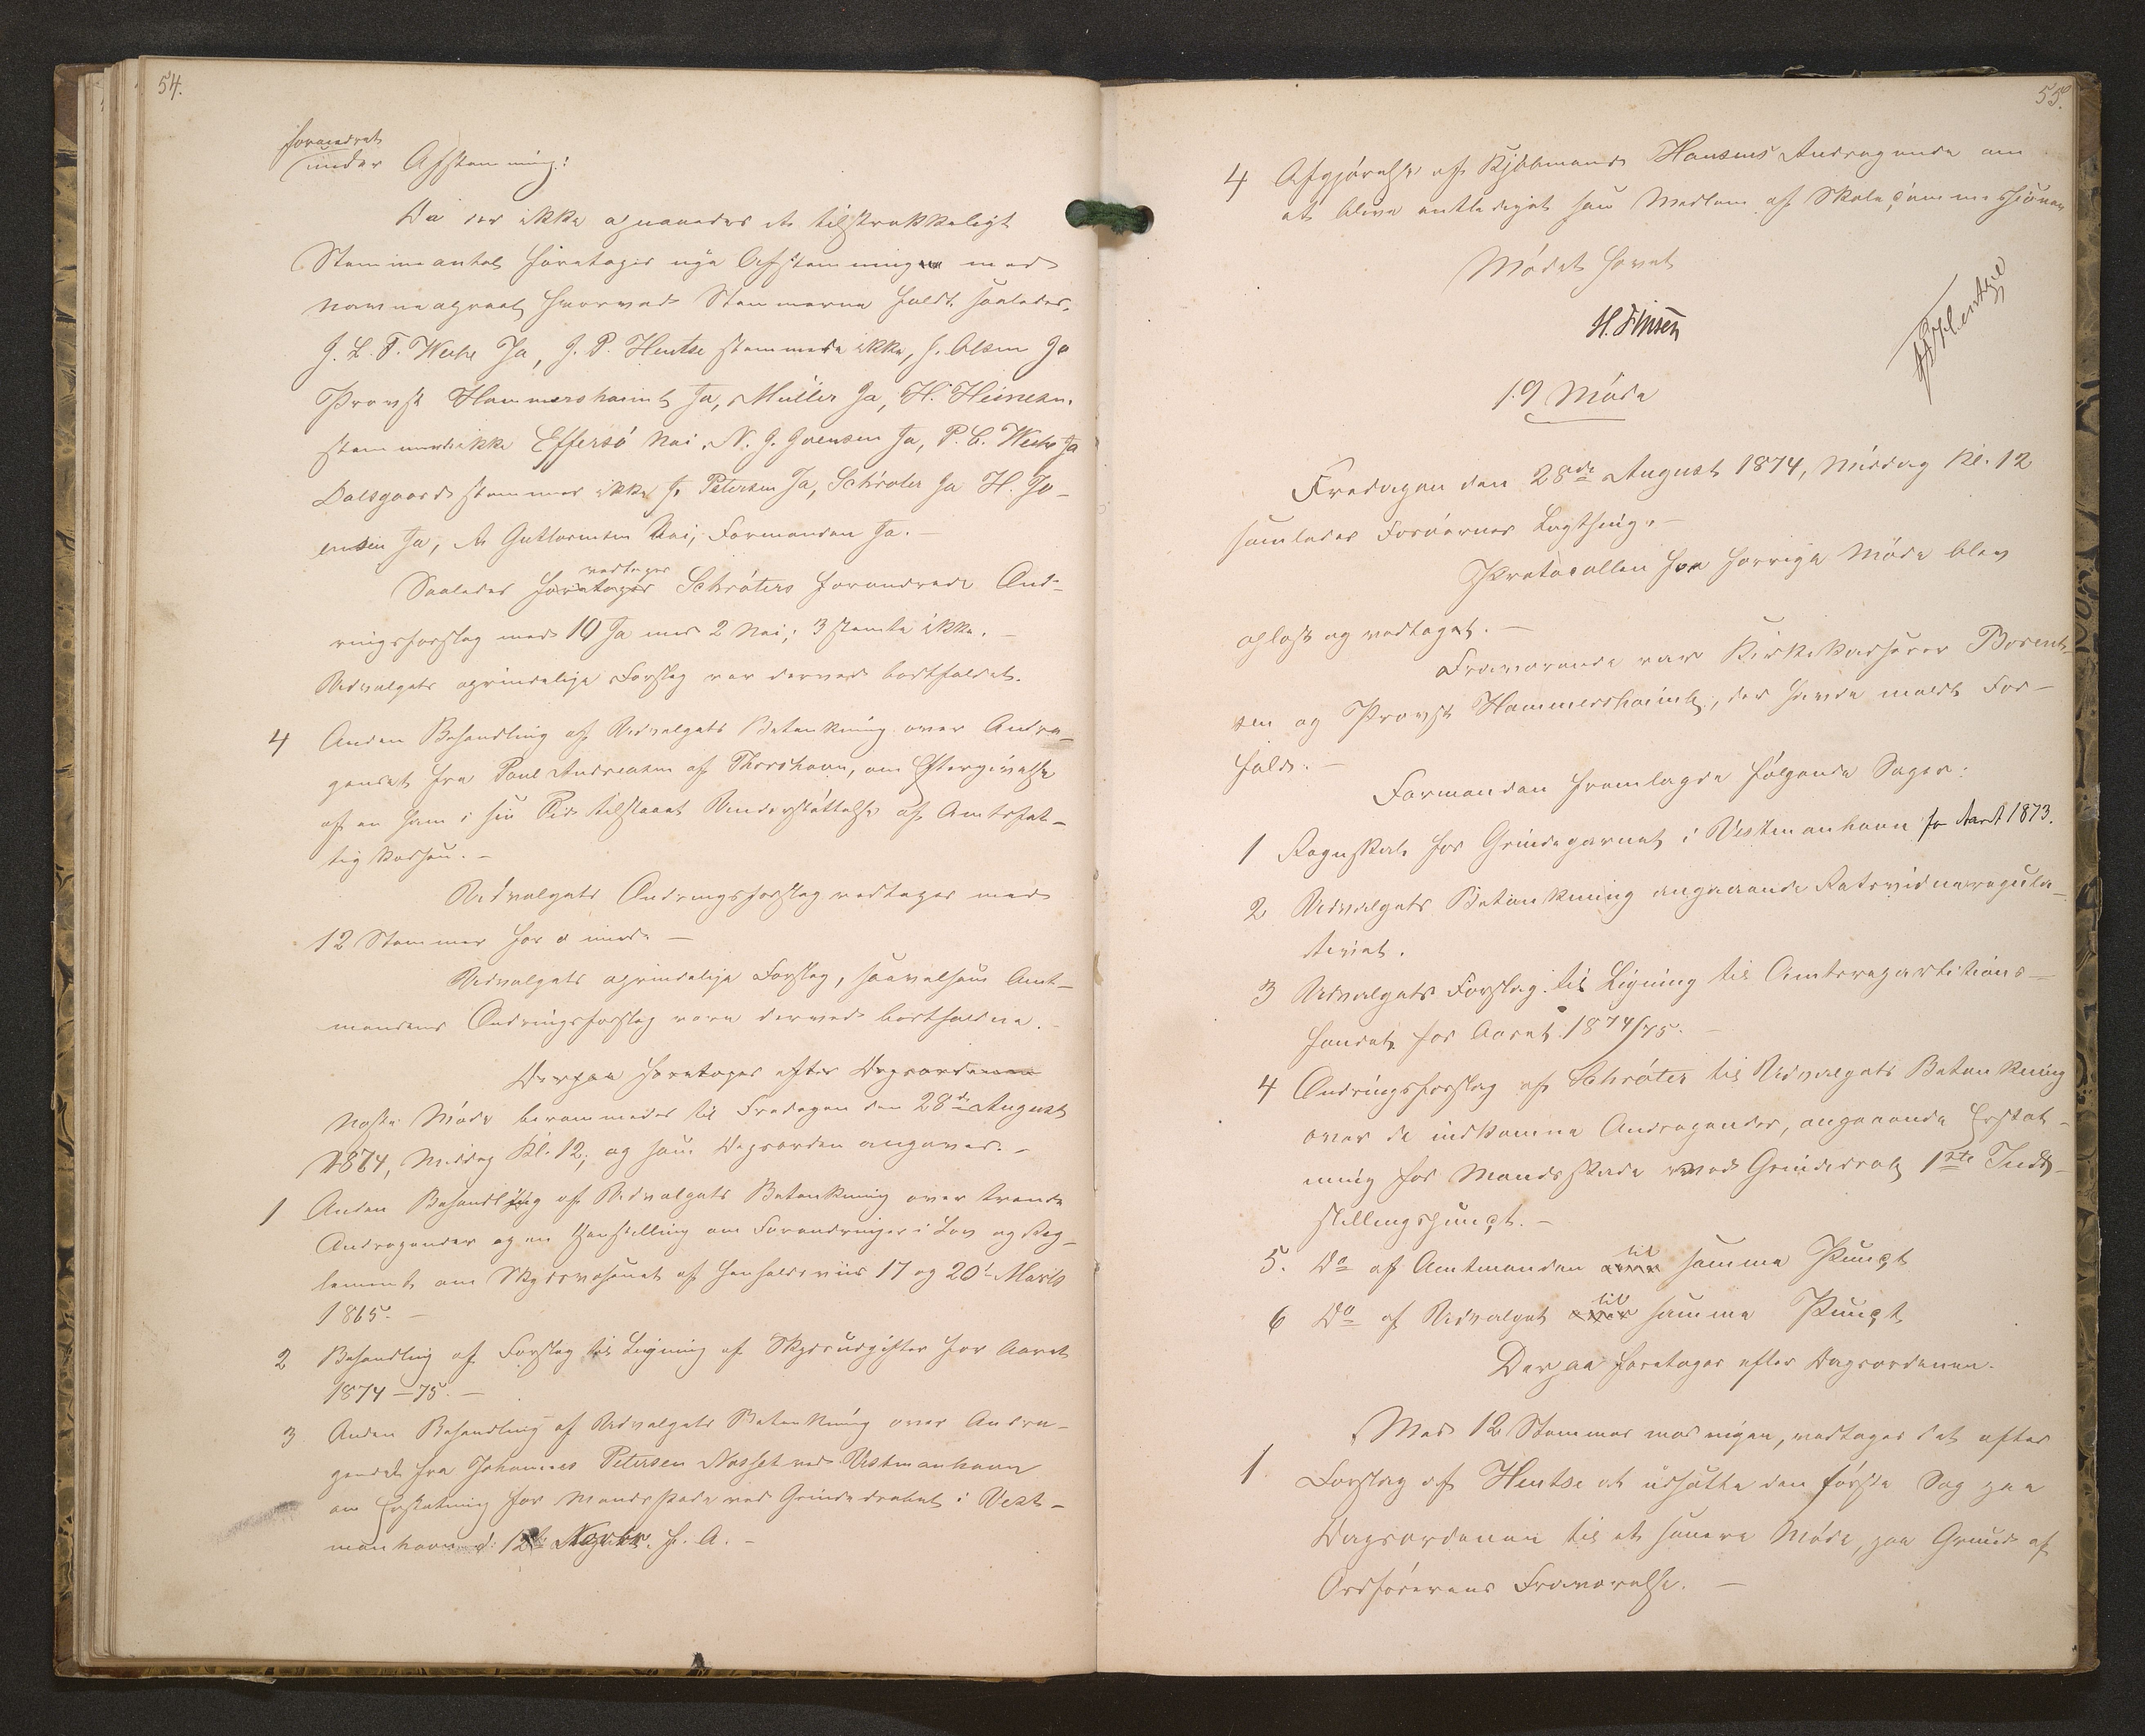 54.
forandret
under Afstemning:
Da der ikke opnaaedes et tilstrækkeligt
Stemmeantal foretoges nye Afstemning med
Navneopraab hvorved Stemmerne faldt saaledes.
J. L. T. Weihe Ja, J. P. Hentze stemmede ikke, J. Olsen Ja
Provst Hammershaimb Ja, Müller Ja, H. Heinesen.
stemmede ikke Effersö Nei, N. J. Joensen Ja, P. C. Weihe Ja
Dalsgaard stemmer ikke J. Petersen Ja, Schröter Ja H. Jo-
ensen Ja, A Guttormsen Nei, Formanden Ja.-
vedtages
Saaledes foretages Schröters forandrede Æn-
ringsforslag med 10 Ja mod 2 Nei; 3 stemte ikke.-
Udvalgets oprindelige Forslag var derved bortfaldet.
4 Anden Behandling af Udvalgets Betænkning over Andra-
gendet fra Poul Andreasen af Thorshavn, om Eftergivelse
af en ham i sin Tid tilstaaet Understöttelse af Amtsfat-
tigkassen.-
Udvalgets Ændringsforslag vedtages med
12 Stemmer for o imod-
Udvalgets oprindelige Forslag, saavelsom Amt-
mandens Ændringsforslag vare derved bortfaldne.
Derpaa foretoges efter Dagsordenen
Næste Möde berammedes til Fredagen den 28de August
1874, Middag Kl. 12, og som Dagsorden angaves.-
1 Anden Behandling af Udvalgets Betænkning over trende
Andragender og en Henstilling om Forandringer i Lov og Reg-
lement om Skydsvæsenet af henholdsviis 17 og 20de Marts
1865.-
2 Behandling af Forslag til Ligning af Skydsudgifter for Aaret
1874-75.-
3 Anden Behandling af Udvalgets Betænkning over Andra-
gendet fra Johannes Petersen Næsset ved Vestmanhavn
om Erstatning for Mandsskade ved Grindedrabet i Vest-
manhavn d: 12te Novbr. f. A.-
55.
4 Afgjörelse af Kjöbmand Hansens Andragende om
at blive entlediget som Medlem af Skolecommissionen
Mödet hævet
H. Finsen
JPHentze
19 Möde
Fredagen den 28de August 1874, Middag Kl. 12
samledes Færöernes Lagthing.-
Protocollen for forrige Möde blev
oplæst og vedtaget.-
Fraværende var Kirkekasserer Berent-
sen og Provst Hammershaimb, der havde meldt For-
fald.-
Formanden fremlagde fölgende Sager:
1 Regnskab for Grindegarnet i Vestmanhavn for Aaret 1873.
2 Udvalgets Betænkning angaaende Retsvidneregula-
tivet.
3 Udvalgets Forslag til Ligning til Amtsrepartitions-
fondet for Aaret 1874/75.-
4 Ændringsforslag af Schröter til Udvalgets Betænkning
over de indkomne Andragender, angaaende Erstat-
ning for Mandsskade ved Grindedrab 1ste Indt-
stillingspunct.-
5. Do af Amtmanden over til samme Punct
6 Do af Udvalget over til samme Punct
Derpaa foretoges efter Dagsordenen.
Med 12 Stemmer mod nogen, vedtoges det efter
1 Forslag af Hentze at udsætte den förste Sag paa
Dagsordenen til et senere Möde, paa Grund af
Ordförerens Fraværelse.-